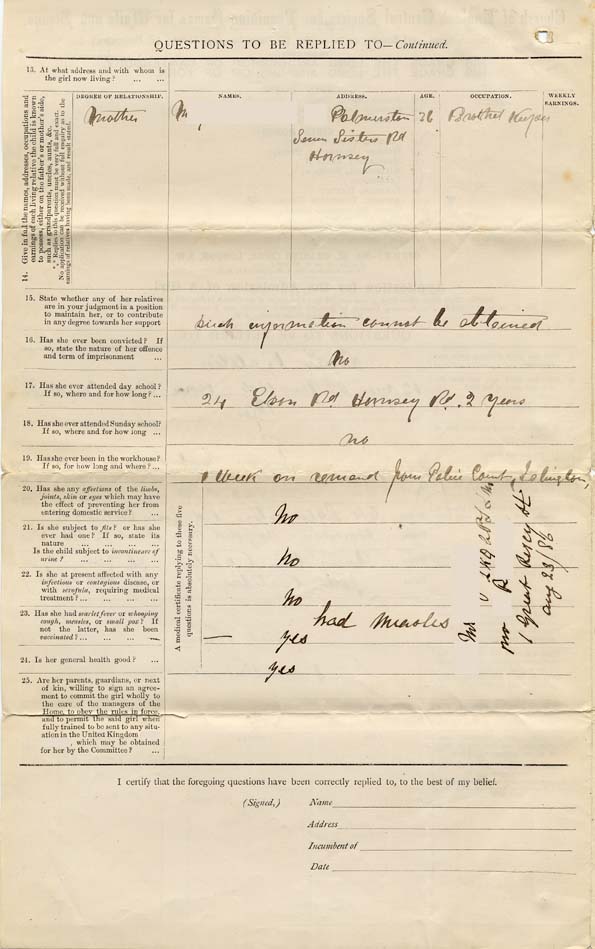 QUESTIONS TO BE REPLIED TO—Continued.
13. At what address and with whom is
the girl now living? ... ...
14. Give in full the names, addresses, occupations and
earnings of each living relative the child is known
to possess, either on the father's or mother's side,
such as grandparents, uncles, aunts, &c.
*** Replies to this question must be very full and exact.
No application can be received without full enquiry as to the
earnings of relatives having been made, and result stated.
DEGREE OF RELATIONSHIP. NAMES. ADDRESS. AGE. OCCUPATION. WEEKLY
EARNINGS.
Mother M Palmerston 26 Brothel Keeper
Seven Sisters Rd
Hornsey
15. State whether any of her relatives
are in your judgment in a position
to maintain her, or to contribute
in any degree towards her support
such information cannot be obtained
16. Has she ever been convicted? If
so, state the nature of her offence
and term of imprisonment ...
No
17. Has she ever attended day school?
If so, where and for how long? ...
24 Rd Hornsey Rd. 2 years
18. Has she ever attended Sunday school?
If so, where and for how long ...
no
19. Has she ever been in the workhouse?
If so, for how long and where? ...
1 Week on remand from Police Court, Islington,
A medical certificate replying to these five
questions is absolutely necessary.
20. Has she any affections of the limbs,
joints, skin or eyes which may have
the effect of preventing her from
entering domestic service? ...
No
21. Is she subject to fits? or has she
ever had one? If so, state its
nature ... ... ... ...
Is the child subject to incontinence of
urine? ... ... ... ...
No
22. Is she at present affected with any
infectious or contagious disease, or
with scrofula, requiring medical
treatment? ... ... ... ...
No
23. Has she had scarlet fever or whooping
cough, measles, or small pox? If
not the latter, has she been
vaccinated? ... ... ... ...
had Measles
— yes
24. Is her general health good? ...
yes
1 Great St
Aug 23/86
25. Are her parents, guardians, or next
of kin, willing to sign an agree-
ment to commit the girl wholly to
the care of the managers of the
Home, to obey the rules in force,
and to permit the said girl when
fully trained to be sent to any situ-
ation in the United Kingdom
, which may be obtained
for her by the Committee? ...
I certify that the foregoing questions have been correctly replied to, to the best of my belief.
(Signed,) Name
Address
Incumbent of
Date